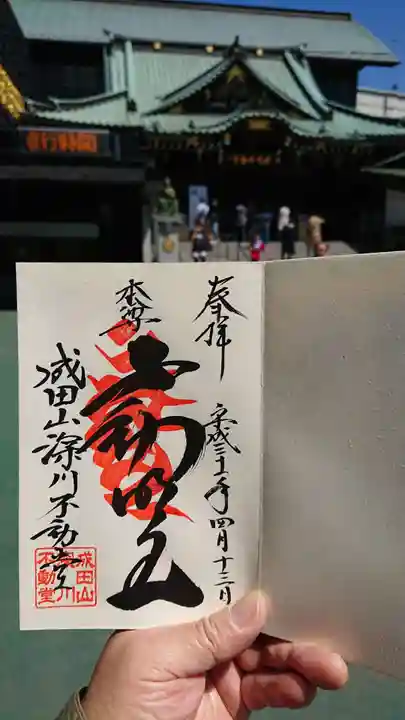 奉拝
平成三十一年四月十三日
本尊
不動明王
成田山深川不動堂
成田山
深川
不動堂